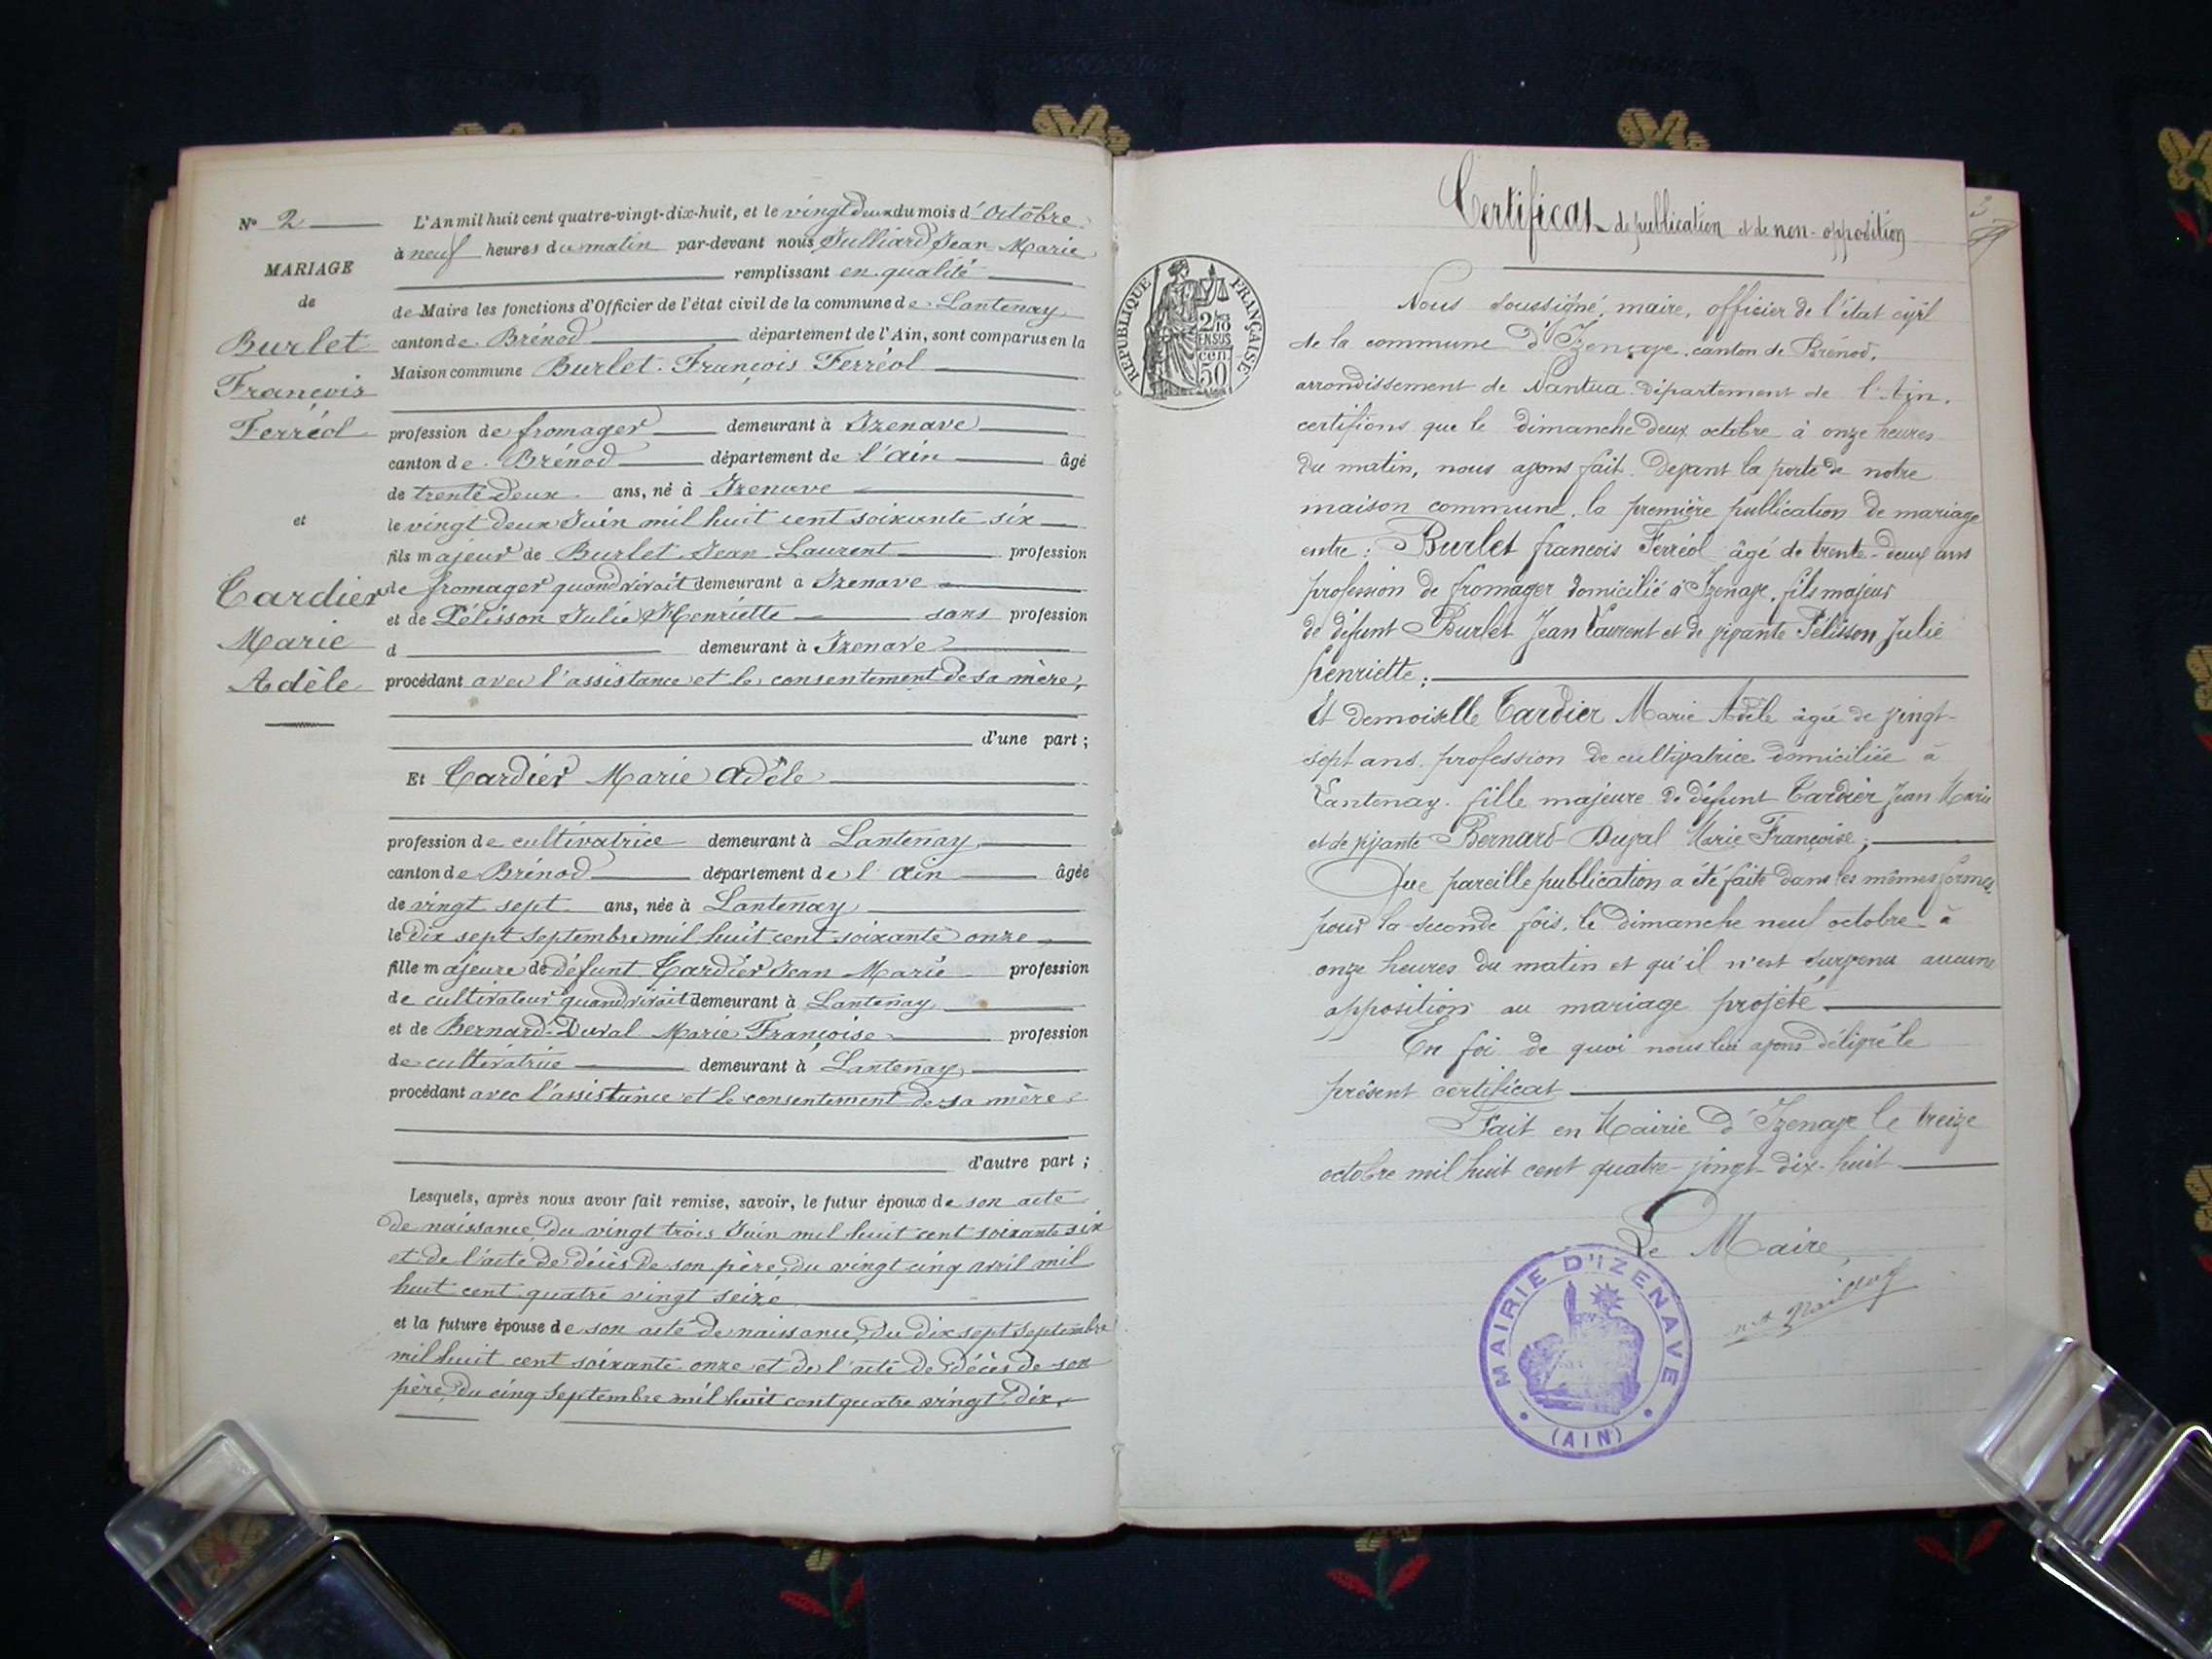 Nº 2
MARIAGE
de
Burlet
François
Ferréol
et
Tardier
Marie
Adèle
L'An mil huit cent quatre-vingt-dix-huit, et le vingt deux du mois d'Octobre
à neuf heures du matin par-devant nous Julliard Jean Marie
remplissant en qualité
de Maire les fonctions d'Officier de l'état civil de la commune de Lantenay
canton de Brénod département de l'Ain, sont comparus en la
Maison commune Burlet François Ferréol
profession de fromager demeurant à Izenave
canton de Brénod département de l'ain âgé
de trente deux ans, né à Izenave
le vingt deux Juin mil huit cent soixante six
fils majeur de Burlet Jean Laurent profession
de fromager quand vivait demeurant à Izenave
et de Pélisson Julie Henriette sans profession
d demeurant à Izenave
procédant avec l'assistance et le consentement de sa mère,
d'une part ;
Et Tardier Marie Adèle
profession de cultivatrice demeurant à Lantenay
canton de Brénod département de l'ain âgée
de vingt sept ans, née à Lantenay
le dix sept Septembre mil huit cent soixante onze
fille majeure de défunt Tardier Jean Marie profession
de cultivateur quand vivait demeurant à Lantenay
et de Bernard-Duval Marie Françoise profession
de cultivatrice demeurant à Lantenay
procédant avec l'assistance et le consentement de sa mère
d'autre part ;
Lesquels, après nous avoir fait remise, savoir, le futur époux de son acte
de naissance du vingt trois Juin mil huit cent soixante six
et de l'acte de décès de son père du vingt cinq avril mil
huit cent quatre vingt seize
et la future épouse de son acte de naissance, du dix sept Septembre
mil huit cent soixante onze et de l'acte de décès de son
père, du cinq Septembre mil huit cent quatre vingt dix.
Certificat de publication et de non-opposition
RÉPUBLIQUE FRANÇAISE
2/10
EN SUS
50
cen.
Nous soussigné, maire, officier de l'état civil
de la commune d'Izenave, canton de Brénod,
arrondissement de Nantua département de l'Ain,
certifions que le dimanche deux octobre à onze heures
du matin, nous avons fait devant la porte de notre
maison commune, la première publication de mariage
entre : Burlet françois Ferréol âgé de trente-deux ans
profession de fromager domicilié à Izenave, fils majeur
de défunt Burlet Jean Laurent et de vivante Pélisson Julie
henriette ;
Et demoiselle Tardier Marie Adèle âgée de vingt-
sept ans, profession de cultivatrice domiciliée à
Lantenay, fille majeure de défunt Tardier Jean Marie
et de vivante Bernard-Duval Marie Françoise ;
Que pareille publication a été faite dans les mêmes formes,
pour la seconde fois, le dimanche neuf octobre à
onze heures du matin et qu'il n'est survenu aucune
opposition au mariage projeté
En foi de quoi nous lui avons délivré le
présent certificat
Fait en Mairie d'Izenave le treize
octobre mil huit cent quatre-vingt-dix-huit
Le Maire,
MAIRIE D'IZENAVE
(AIN)